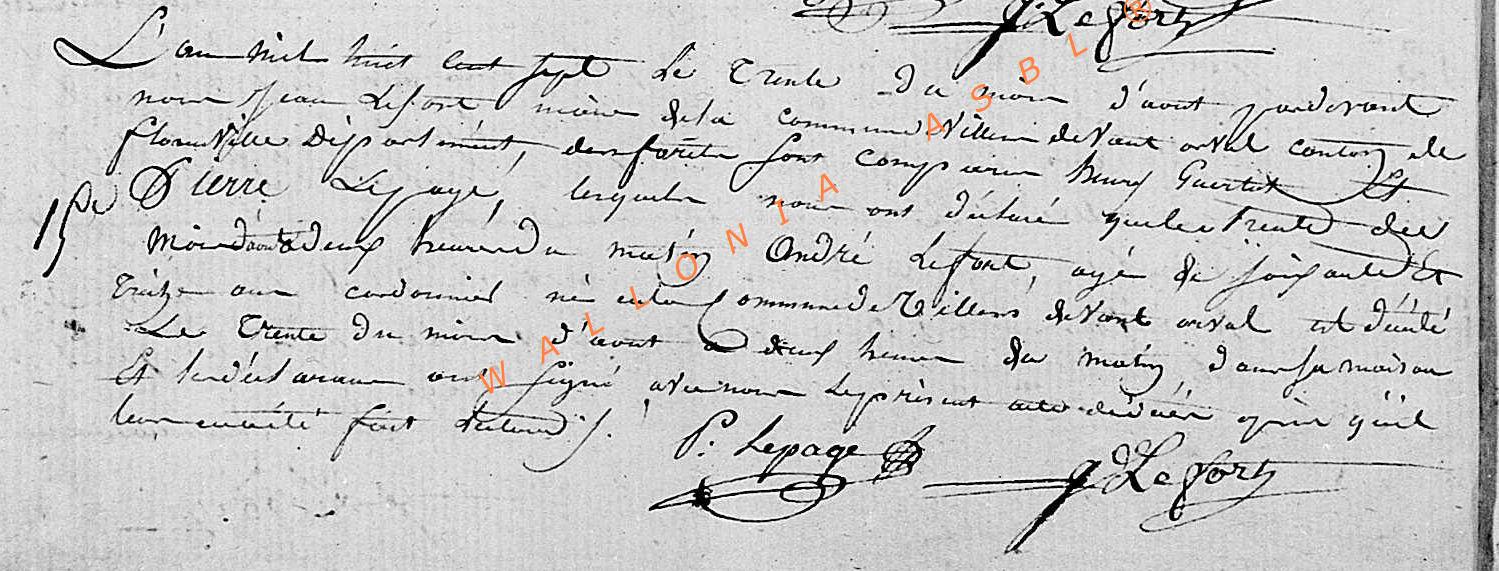 J. Lefort
L'an mil huit cent sept Le Trente du mois d'aout pardevant
nous Jean Lefort maire de la commune Villers devant orval canton de
florenville Département, des forêts sont comparus Et
Pierre Lepage, lesquels nous ont déclaré que le trente du
Mois d'aout a deux heures du matin André Lefort, agé de soixante Et
treize ans cordonnier né en la Commune de Villers devant orval est décédé
Le Trente du mois d'aout a deux heures du matin dans sa maison
Et les déclarans ont signé avec nous le présent acte de décès après qu'il
leur en a été fait lecture.
P. Lepage
J. Lefort
WALLONIA ASBL ®